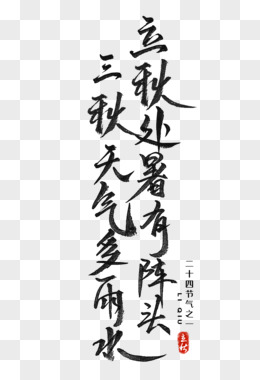 立秋处暑有阵头
三秋天气多雨水
二十四节气之一
LI QIU
立秋